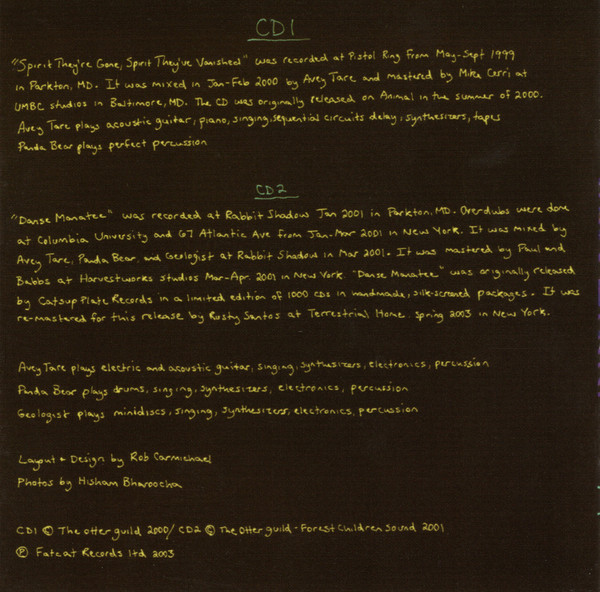 CD1
"Spirit They're Gone, Spirit They've Vanished" was recorded at Pistol Ring From May-Sept 1999
in Parkton, MD. It was mixed in Jan-Feb 2000 by Avey Tare and mastered by Mike Cerri at
UMBC studios in Baltimore, MD. The CD was originally released on Animal in the summer of 2000.
Avey Tare plays acoustic guitar, piano, singing, sequential circuits delay, synthesizers, tapes
Panda Bear plays perfect percussion
CD2
"Danse Manatee" was recorded at Rabbit Shadow Jan 2001 in Parkton, MD. Overdubs were done
at Columbia University and 67 Atlantic Ave from Jan-Mar 2001 in New York. It was mixed by
Avey Tare, Panda Bear, and Geologist at Rabbit Shadow in Mar 2001. It was mastered by Paul and
Babbs at Harvestworks studios Mar-Apr. 2001 in New York. "Danse Manatee" was originally released
by Catsup Plate Records in a limited edition of 1000 CDs in handmade, silk-screened packages. It was
re-mastered for this release by Rusty Santos at Terrestrial Home. spring 2003 in New York.
Avey Tare plays electric and acoustic guitar, singing, synthesizers, electronics, percussion
Panda Bear plays drums, singing, synthesizers, electronics, percussion
Geologist plays minidiscs, singing, synthesizers, electronics, percussion
Layout + Design by Rob Carmichael
Photos by Hisham Bharoocha
CD1 © The Otter guild 2000/ CD2 © The Otter guild - Forest Children Sound 2001
℗ Fatcat Records ltd 2003